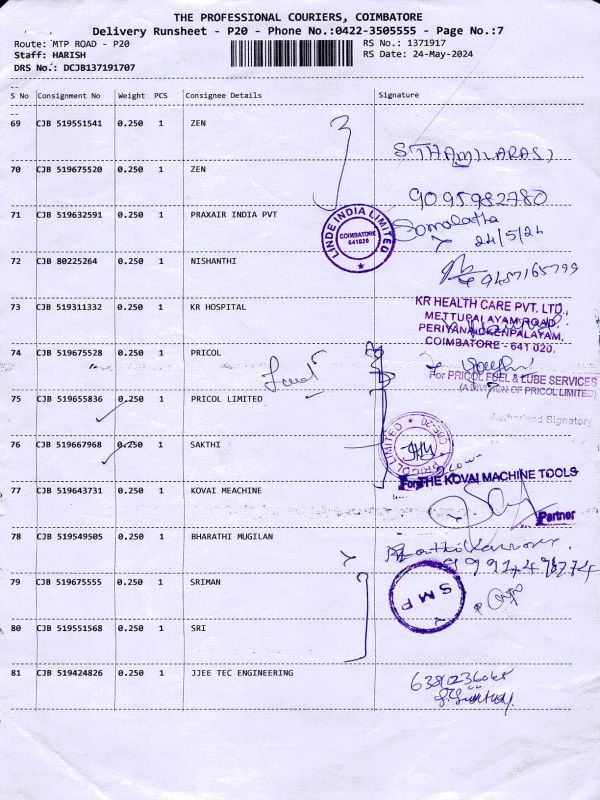 THE PROFESSIONAL COURIERS, COIMBATORE
Delivery Runsheet - P20 - Phone No.:0422-3505555 - Page No.:7
Route: MTP ROAD - P20 RS No.: 1371917
Staff: HARISH RS Date: 24-May-2024
DRS No.: DCJB137191707
S No Consignment No Weight PCS Consignee Details Signature
69 CJB 519551541 0.250 1 ZEN
STHAMILARASI
70 CJB 519675520 0.250 1 ZEN
9095982780
71 CJB 519632591 0.250 1 PRAXAIR INDIA PVT
LINDE INDIA LIMITED
COIMBATORE
641020
24/5/24
72 CJB 80225264 0.250 1 NISHANTHI
9487165799
73 CJB 519311332 0.250 1 KR HOSPITAL
KR HEALTH CARE PVT. LTD.,
METTUPALAYAM ROAD,
PERIYANAICKENPALAYAM,
COIMBATORE - 641 020.
74 CJB 519675528 0.250 1 PRICOL
For PRICOL FUEL & LUBE SERVICES
(A DIVISION OF PRICOL LIMITED)
75 CJB 519655836 0.250 1 PRICOL LIMITED
Authorised Signatory
76 CJB 519667968 0.250 1 SAKTHI
PRICOL LIMITED
For THE KOVAI MACHINE TOOLS
77 CJB 519643731 0.250 1 KOVAI MEACHINE
Partner
78 CJB 519549505 0.250 1 BHARATHI MUGILAN
79 CJB 519675555 0.250 1 SRIMAN
SMP
80 CJB 519551568 0.250 1 SRI
81 CJB 519424826 0.250 1 JJEE TEC ENGINEERING